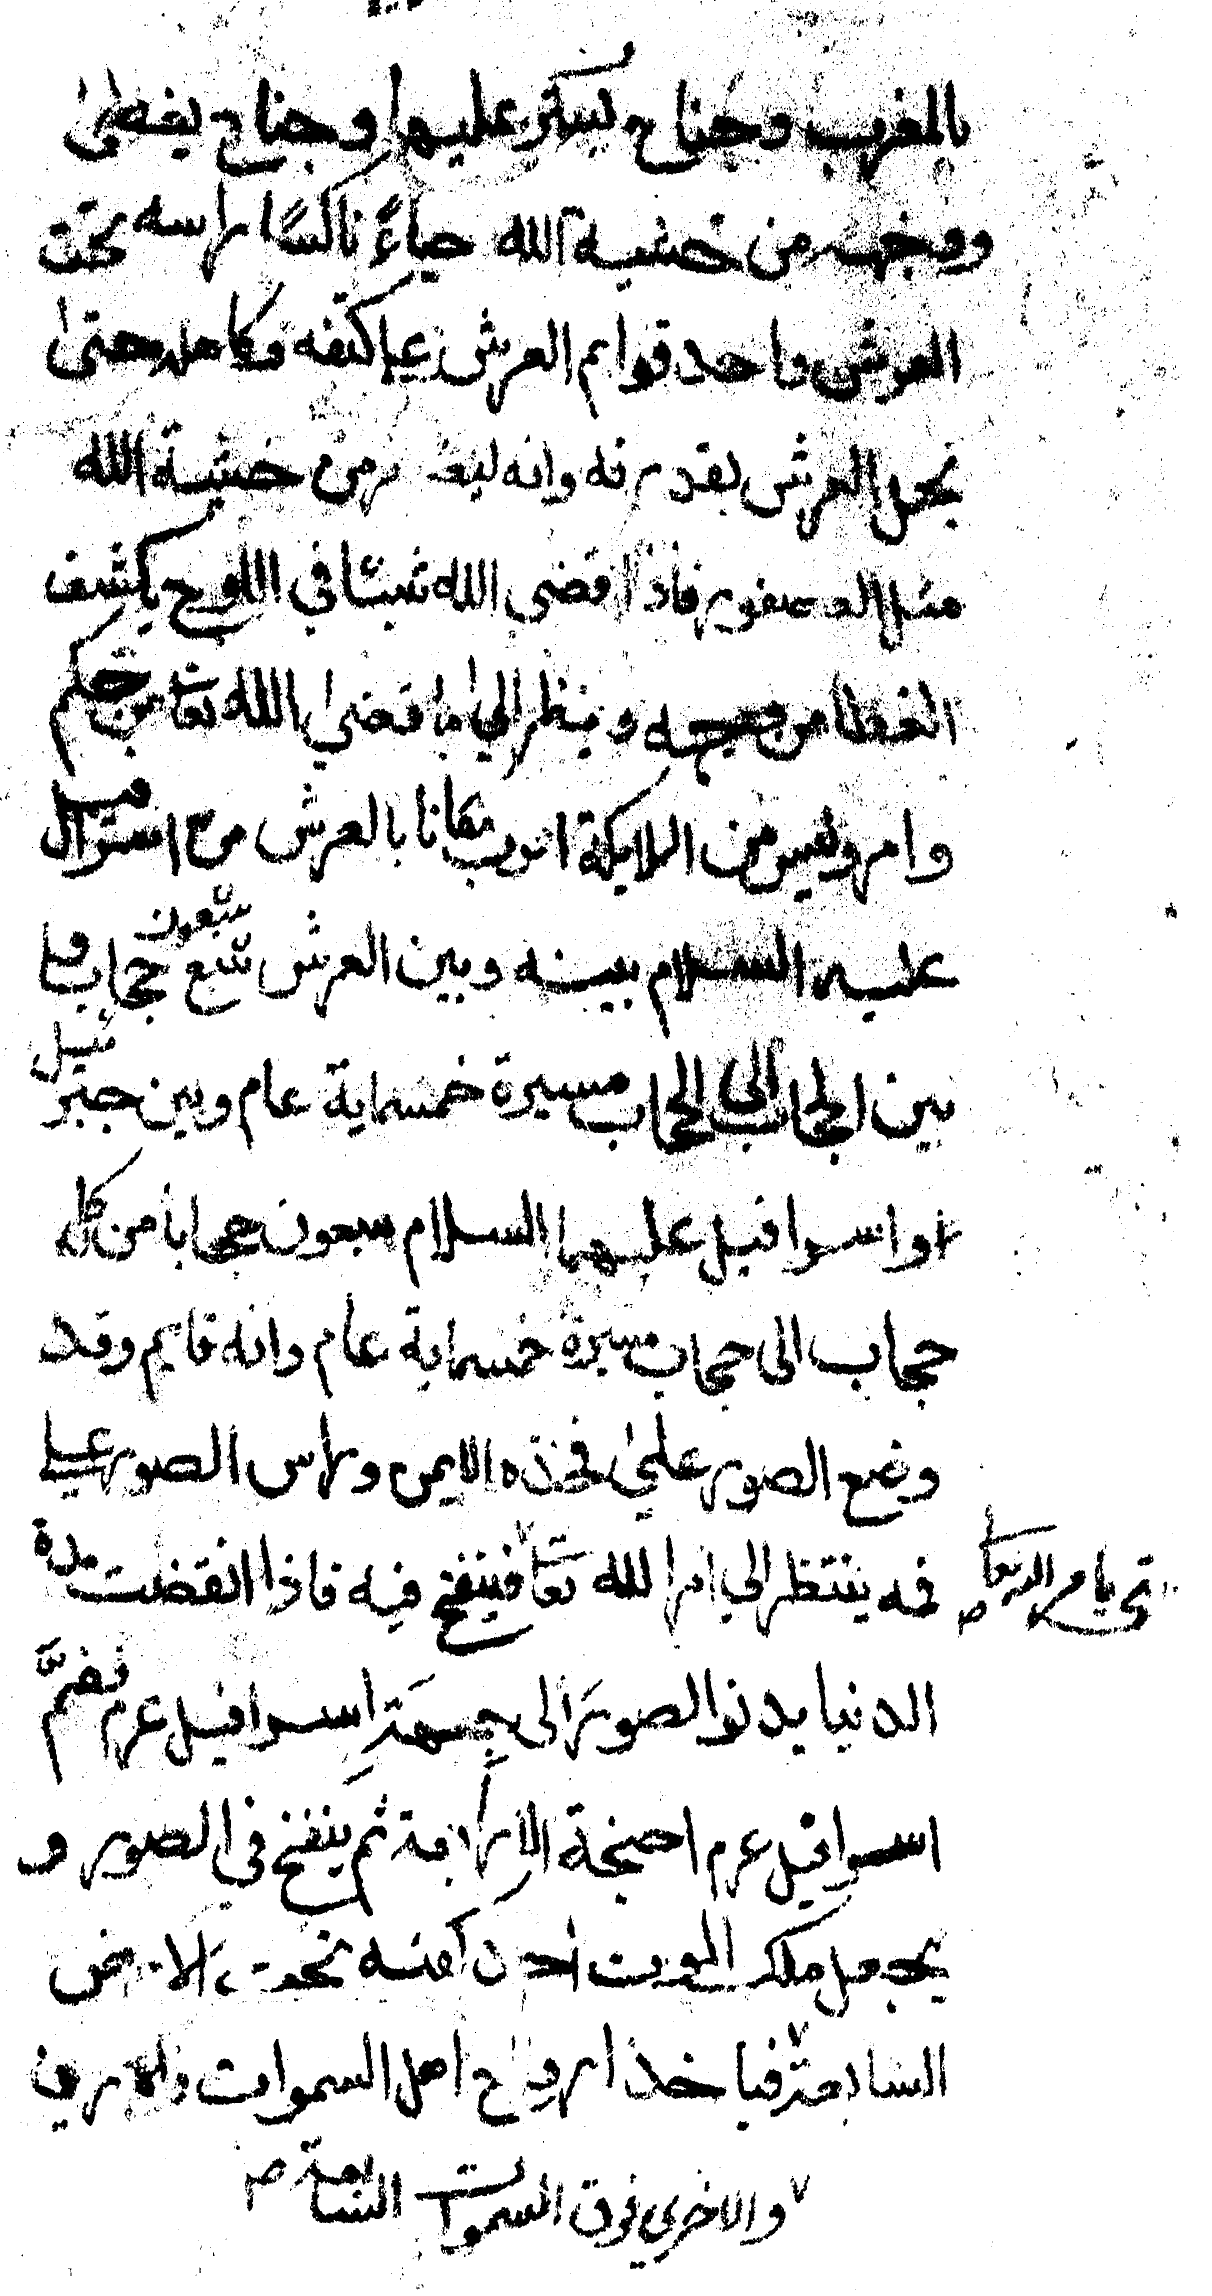 بالمغرب وجناح يستر عليها وجناح يغطى
ووجهه من خشية الله حياءً ناكسًا راسه تحت
العرش واحد قوايم العرش على كتفه وكاهله حتى
يحمل العرش بقدرته وانه ليصغر من خشية الله
مثل العصفور فاذا قضى الله شيئا في اللوح يكشف
الغطا من وجهه وينظر الى ما قضى الله تعا من حكم
وامر وليس من الملايكة اقرب مكانا بالعرش من اسرافيل
عليه السلام بينه وبين العرش سبع حجاب و
سبعون
بين الحجاب الى الحجاب مسيرة خمسماية عام وبين جبرئيل
واسرافيل عليهما السلام سبعون حجابا من كل
حجاب الى حجاب مسيرة خمسماية عام وانه قايم وقد
وضع الصور على فخذه الايمن وراس الصور على
فمه ينتظر الى امر الله تعا فينفخ فيه فاذا انقضت مدة
الدنيا يدنو الصور الى جبهة اسرافيل عرم فضمّ
اسرافيل عرم اجنحة الاربعة ثم ينفخ في الصور و
يجعل ملك الموت احدى كفيه تحت الارض
السابعة فياخذ ارواح اهل السموات والارض
والاخرى فوق السموات السابعة